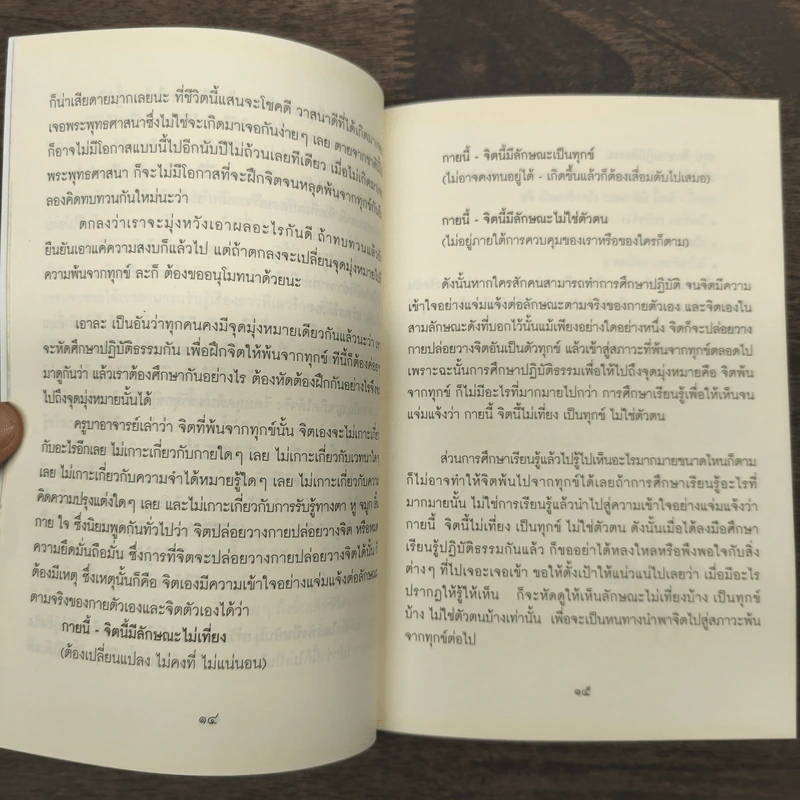 ก็น่าเสียดายมากเลยนะ ที่ชีวิตนี้แสนจะโชคดี วาสนาดีที่ได้เกิดมา
เจอพระพุทธศาสนาซึ่งไม่ใช่จะเกิดมาเจอกันง่ายๆ เลย ตายจากชาตินี้
ก็อาจไม่มีโอกาสแบบนี้ไปอีกนับปีไม่ถ้วนเลยทีเดียว เมื่อไม่เกิดมา
พระพุทธศาสนา ก็จะไม่มีโอกาสที่จะฝึกจิตจนหลุดพ้นจากทุกข์
ลองคิดทบทวนกันใหม่นะว่า
ตกลงว่าเราจะมุ่งหวังเอาผลอะไรกันดี ถ้าทบทวนแล้ว
ยืนยันเอาแค่ความสงบก็แล้วไป แต่ถ้าตกลงจะเปลี่ยนจุดมุ่งหมาย
ความพ้นจากทุกข์ ละก็ ต้องขออนุโมทนาด้วยนะ
เอาละ เป็นอันว่าทุกคนคงมีจุดมุ่งหมายเดียวกันแล้วนะว่า
จะหัดศึกษาปฏิบัติธรรมกัน เพื่อฝึกจิตให้พ้นจากทุกข์ ทีนี้ก็ต้อง
มาดูกันว่า แล้วเราต้องศึกษากันอย่างไร ต้องหัดต้องฝึกกันอย่างไรจึง
ไปถึงจุดมุ่งหมายนั้นได้
ครูบาอาจารย์เล่าว่า จิตที่พ้นจากทุกข์นั้น จิตเองจะไม่เกาะเกี่ยว
กับอะไรอีกเลย ไม่เกาะเกี่ยวกับกายใดๆ เลย ไม่เกาะเกี่ยวกับเวทนาใดๆ
เลย ไม่เกาะเกี่ยวกับความจำได้หมายรู้ใดๆ เลย ไม่เกาะเกี่ยวกับความ
คิดความปรุงแต่งใดๆ เลย และไม่เกาะเกี่ยวกับการรับรู้ทางตา หู จมูก ลิ้น
กาย ใจ ซึ่งนิยมพูดกันทั่วไปว่า จิตปล่อยวางกายปล่อยวางจิต หรือหมด
ความยึดมั่นถือมั่น ซึ่งการที่จิตจะปล่อยวางกายปล่อยวางจิตได้นั้น ก็
ต้องมีเหตุ ซึ่งเหตุนั้นก็คือ จิตเองมีความเข้าใจอย่างแจ่มแจ้งต่อลักษณะ
ตามจริงของกายตัวเองและจิตตัวเองได้ว่า
กายนี้ - จิตนี้มีลักษณะไม่เที่ยง
(ต้องเปลี่ยนแปลง ไม่คงที่ ไม่แน่นอน)
๑๔
กายนี้ - จิตนี้มีลักษณะเป็นทุกข์
(ไม่อาจคงทนอยู่ได้ - เกิดขึ้นแล้วก็ต้องเสื่อมดับไปเสมอ)
กายนี้ - จิตนี้มีลักษณะไม่ใช่ตัวตน
(ไม่อยู่ภายใต้การควบคุมของเราหรือของใครก็ตาม)
ดังนั้นหากใครสักคนสามารถทำการศึกษาปฏิบัติ จนจิตมีความ
เข้าใจอย่างแจ่มแจ้งต่อลักษณะตามจริงของกายตัวเอง และจิตเองใน
สามลักษณะดังที่บอกไว้นั้นแม้เพียงอย่างใดอย่างหนึ่ง จิตก็จะปล่อยวาง
กายปล่อยวางจิตอันเป็นตัวทุกข์ แล้วเข้าสู่สภาวะที่พ้นจากทุกข์ตลอดไป
เพราะฉะนั้นการศึกษาปฏิบัติธรรมเพื่อให้ไปถึงจุดมุ่งหมายคือ จิตพ้น
จากทุกข์ ก็ไม่มีอะไรที่มากมายไปกว่า การศึกษาเรียนรู้เพื่อให้เห็นจน
แจ่มแจ้งว่า กายนี้ จิตนี้ไม่เที่ยง เป็นทุกข์ ไม่ใช่ตัวตน
ส่วนการศึกษาเรียนรู้แล้วไปรู้ไปเห็นอะไรมากมายขนาดไหนก็ตาม
ก็ไม่อาจทำให้จิตพ้นไปจากทุกข์ได้เลยถ้าการศึกษาเรียนรู้อะไรที่
มากมายนั้น ไม่ใช่การเรียนรู้แล้วนำไปสู่ความเข้าใจอย่างแจ่มแจ้งว่า
กายนี้ จิตนี้ไม่เที่ยง เป็นทุกข์ ไม่ใช่ตัวตน ดังนั้นเมื่อได้ลงมือศึกษา
เรียนรู้ปฏิบัติธรรมกันแล้ว ก็ขออย่าได้หลงใหลหรือพึงพอใจกับสิ่ง
ต่างๆ ที่ไปเจอะเจอเข้า ขอให้ตั้งเป้าให้แน่วแน่ไปเลยว่า เมื่อมีอะไร
ปรากฏให้รู้ให้เห็น ก็จะหัดดูให้เห็นลักษณะไม่เที่ยงบ้าง เป็นทุกข์
บ้าง ไม่ใช่ตัวตนบ้างเท่านั้น เพื่อจะเป็นหนทางนำพาจิตไปสู่สภาวะพ้น
จากทุกข์ต่อไป
๑๕